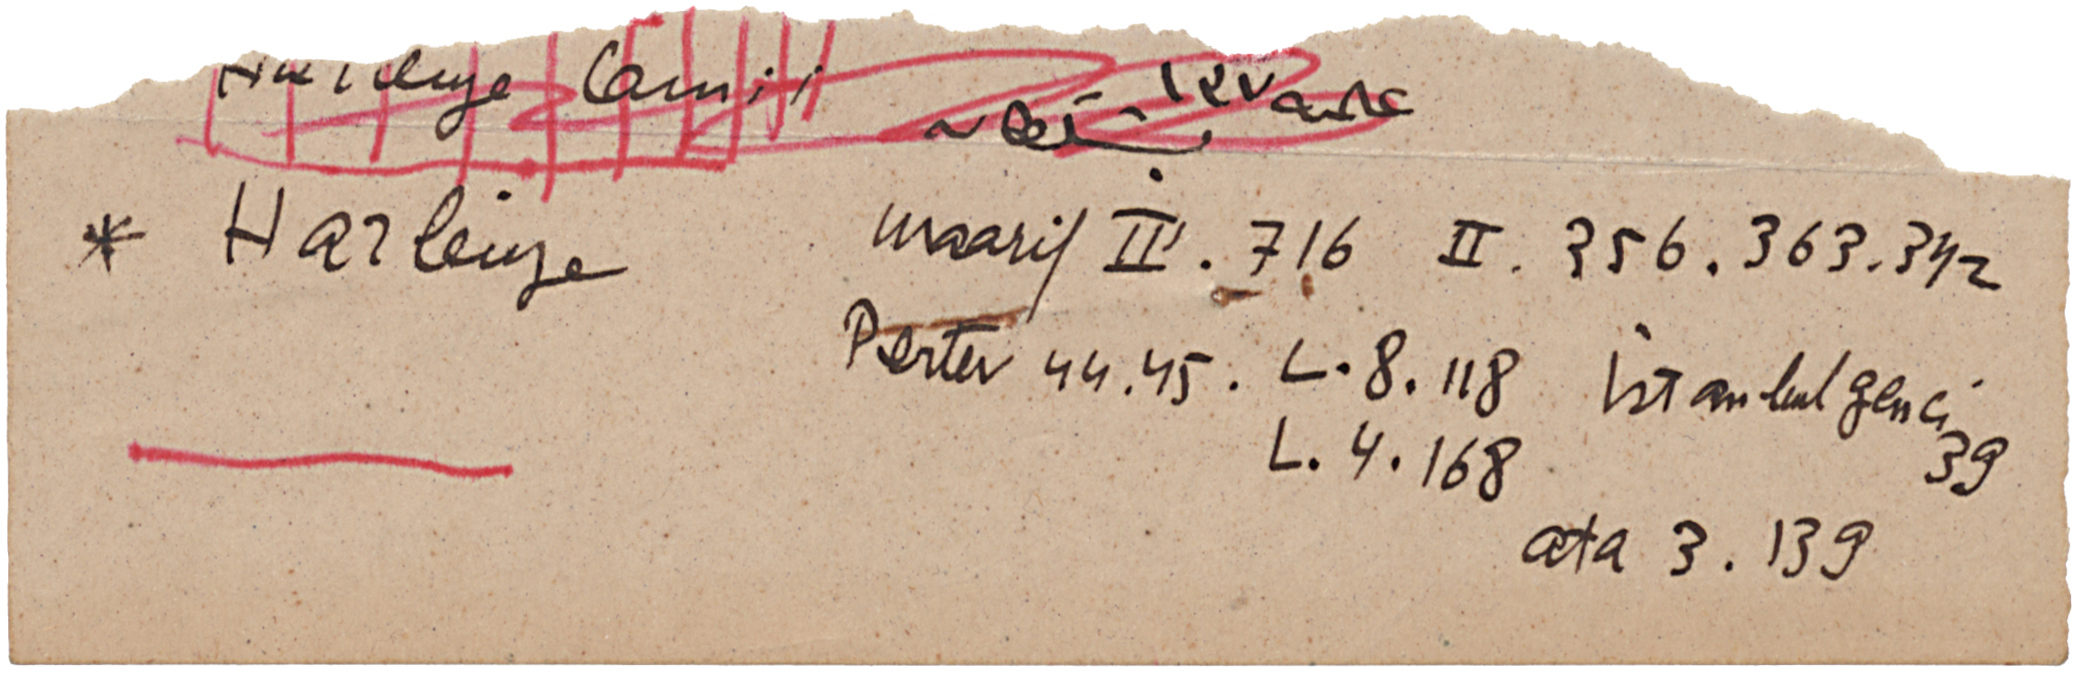 Camii
* Harbiye maarif II. 716 II. 356.363.342
Pertev 44.45. L.8.118 İstanbul genci
L.4.168 39
ata 3.139